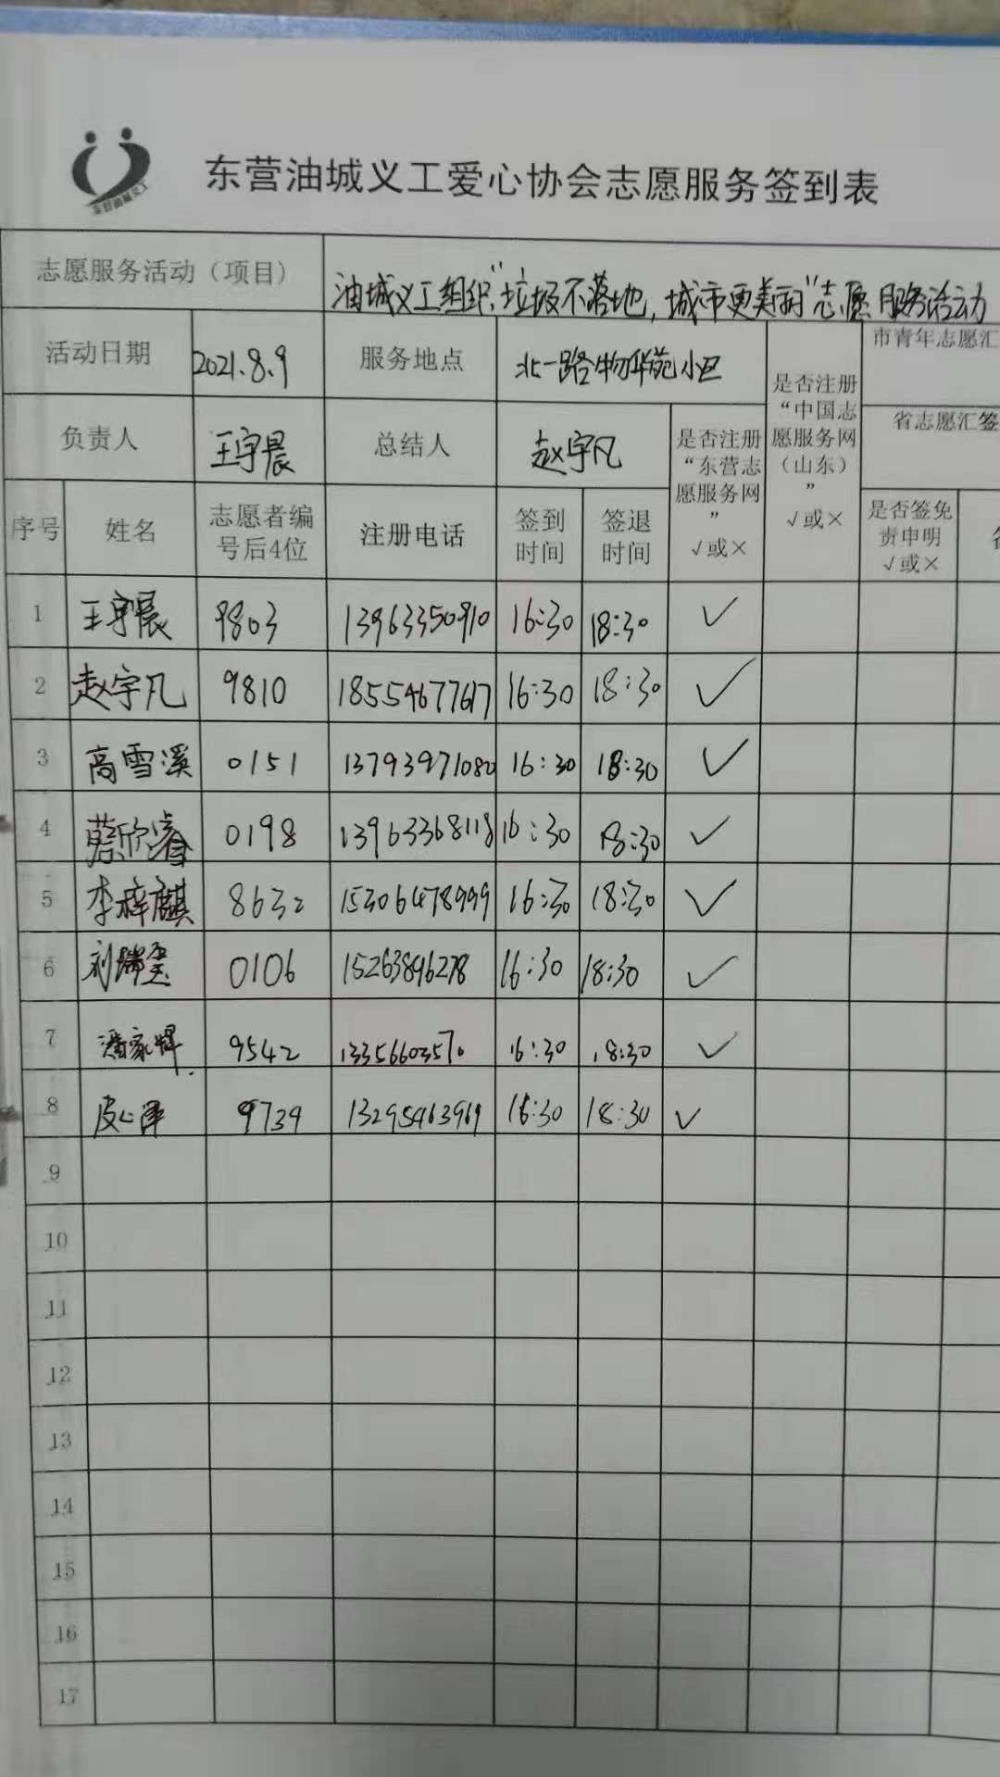 东营油城义工爱心协会志愿服务签到表
志愿服务活动（项目） 油城义工组织"垃圾不落地，城市更美丽"志愿服务活动
活动日期 2021.8.9 服务地点 北一路物华苑小区
市青年志愿汇
负责人 王宇晨 总结人 赵宇凡
是否注册“东营志愿服务网” √或×
是否注册“中国志愿服务网（山东）” √或×
省志愿汇签
序号 姓名 志愿者编号后4位 注册电话 签到时间 签退时间 是否签免责申明 √或×
1 王宇晨 9803 13963350910 16:30 18:30 ✓
2 赵宇凡 9810 18554677617 16:30 18:30 ✓
3 高雪溪 0151 13793971082 16:30 18:30 ✓
4 蔡欣睿 0198 13963368118 16:30 18:30 ✓
5 李梓麒 8632 15306478999 16:30 18:30 ✓
6 刘瑞 0106 15263896278 16:30 18:30 ✓
7 潘家辉 9542 13356603570 16:30 18:30 ✓
8 皮心泽 9739 13295463969 16:30 18:30 ✓
9
10
11
12
13
14
15
16
17